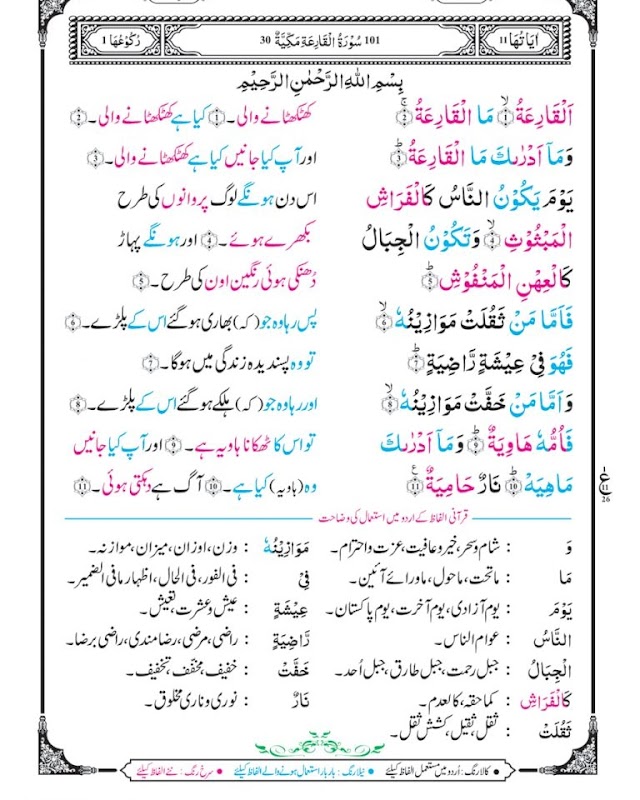 اٰیَاتُھَا 11
101 سُوْرَةُ الْقَارِعَةِ مَكِّيَّةٌ 30
رُكُوْعُهَا 1
بِسْمِ اللّٰهِ الرَّحْمٰنِ الرَّحِيْمِ
اَلْقَارِعَةُۙ ﴿1﴾ مَا الْقَارِعَةُۚ ﴿2﴾ کھٹکھٹانے والی۔ ﴿1﴾ کیا ہے کھٹکھٹانے والی۔ ﴿2﴾
وَمَاۤ اَدْرٰىكَ مَا الْقَارِعَةُؕ ﴿3﴾ اور آپ کیا جانیں کیا ہے کھٹکھٹانے والی۔ ﴿3﴾
يَوْمَ يَكُوْنُ النَّاسُ كَالْفَرَاشِ اس دن ہونگے لوگ پروانوں کی طرح
الْمَبْثُوْثِۙ ﴿4﴾ وَتَكُوْنُ الْجِبَالُ بکھرے ہوئے۔ ﴿4﴾ اور ہونگے پہاڑ
كَالْعِهْنِ الْمَنْفُوْشِؕ ﴿5﴾ دُھنکی ہوئی رنگین اون کی طرح۔ ﴿5﴾
فَاَمَّا مَنْ ثَقُلَتْ مَوَازِيْنُهٗۙ ﴿6﴾ پس رہا وہ جو (کہ) بھاری ہو گئے اس کے پلڑے۔ ﴿6﴾
فَهُوَ فِيْ عِيْشَةٍ رَّاضِيَةٍؕ ﴿7﴾ تو وہ پسندیدہ زندگی میں ہوگا۔ ﴿7﴾
وَاَمَّا مَنْ خَفَّتْ مَوَازِيْنُهٗۙ ﴿8﴾ اور رہا وہ جو (کہ) ہلکے ہو گئے اس کے پلڑے۔ ﴿8﴾
فَاُمُّهٗ هَاوِيَةٌؕ ﴿9﴾ وَمَاۤ اَدْرٰىكَ تو اس کا ٹھکانا ہاویہ ہے۔ ﴿9﴾ اور آپ کیا جانیں
مَاهِيَهْؕ ﴿10﴾ نَارٌ حَامِيَةٌ ﴿11﴾ وہ (ہاویہ) کیا ہے۔ ﴿10﴾ آگ ہے دہکتی ہوئی۔ ﴿11﴾
ع
11
26
قرآنی الفاظ کے اردو میں استعمال کی وضاحت
وَ : شام وسحر، خیر و عافیت، عزت و احترام۔ مَوَازِيْنُهٗ : وزن، اوزان، میزان، موازنہ۔
مَا : ماتحت، ماحول، ماورائے آئین۔ فِيْ : فی الفور، فی الحال، اظہار مافی الضمیر۔
يَوْمَ : یوم آزادی، یوم آخرت، یوم پاکستان۔ عِيْشَةٍ : عیش و عشرت، تعیش۔
النَّاسُ : عوام الناس۔ رَّاضِيَةٍ : راضی، مرضی، رضامندی، راضی برضا۔
الْجِبَالُ : جبل رحمت، جبل طارق، جبل اُحد۔ خَفَّتْ : خفیف، مخفف، تخفیف۔
كَالْفَرَاشِ : کماحقہ، کالعدم۔ نَارٌ : نوری و ناری مخلوق۔
ثَقُلَتْ : ثقل، ثقیل، کشش ثقل۔
• کالا رنگ : اُردو میں مستعمل الفاظ کیلئے • نیلا رنگ : بار بار استعمال ہونے والے الفاظ کیلئے • سرخ رنگ : نئے الفاظ کیلئے